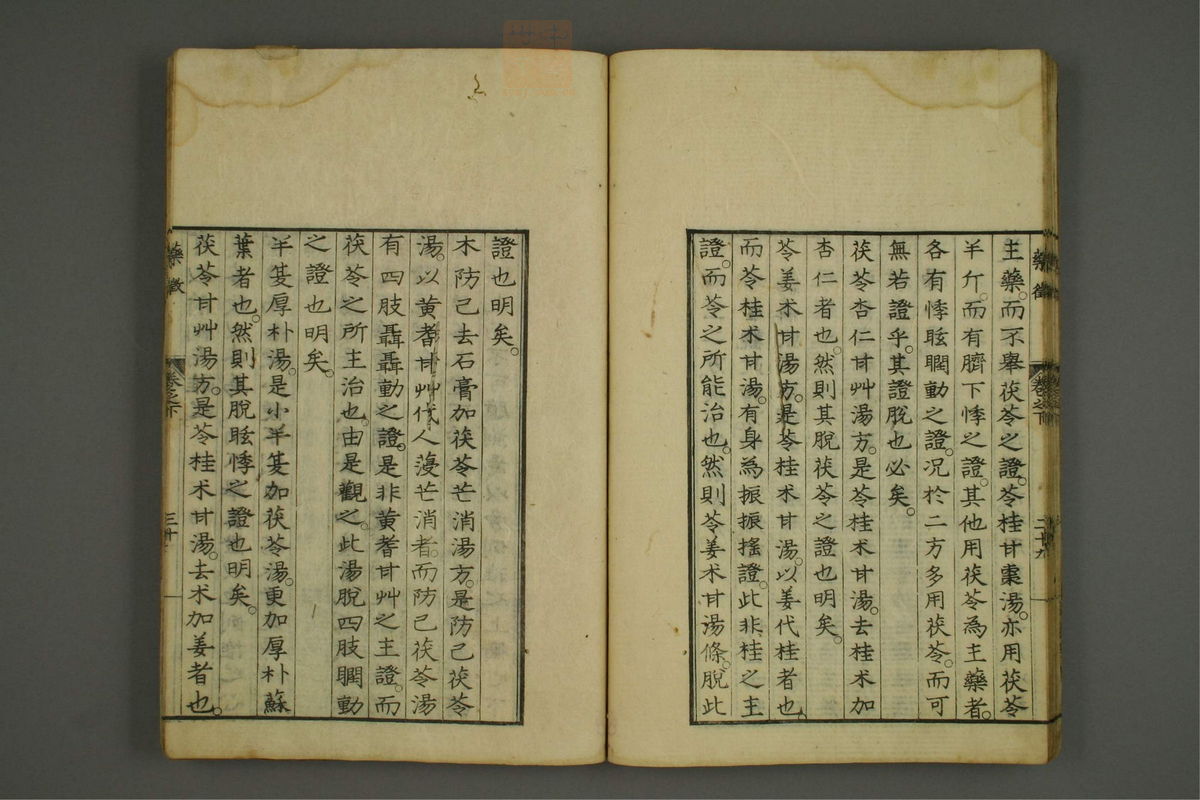 主藥。而不舉茯苓之證。苓桂甘棗湯。亦用茯苓
半斤。而有臍下悸之證。其他用茯苓為主藥者。
各有悸眩瞤動之證。况於二方多用茯苓。而可
無若證乎。其證脫也必矣。
茯苓杏仁甘艸湯方。是苓桂术甘湯。去桂术加
杏仁者也。然則其脫茯苓之證也明矣。
苓姜术甘湯方。是苓桂术甘湯。以姜代桂者也。
而苓桂术甘湯。有身為振振搖證。此非桂之主
證。而苓之所能治也。然則苓姜术甘湯條。脫此
藥徵
卷之下
二十九
證也明矣。
木防己去石膏加茯苓芒消湯方。是防己茯苓
湯。以黄耆甘艸代人薓芒消者。而防己茯苓湯
有四肢聶聶動之證。是非黄耆甘艸之主證。而
茯苓之所主治也。由是觀之。此湯脫四肢瞤動
之證也明矣。
半夏厚朴湯。是小半夏加茯苓湯。更加厚朴蘇
葉者也。然則其脫眩悸之證也明矣。
茯苓甘艸湯方。是苓桂术甘湯。去术加姜者也。
藥徵
卷之下
三十